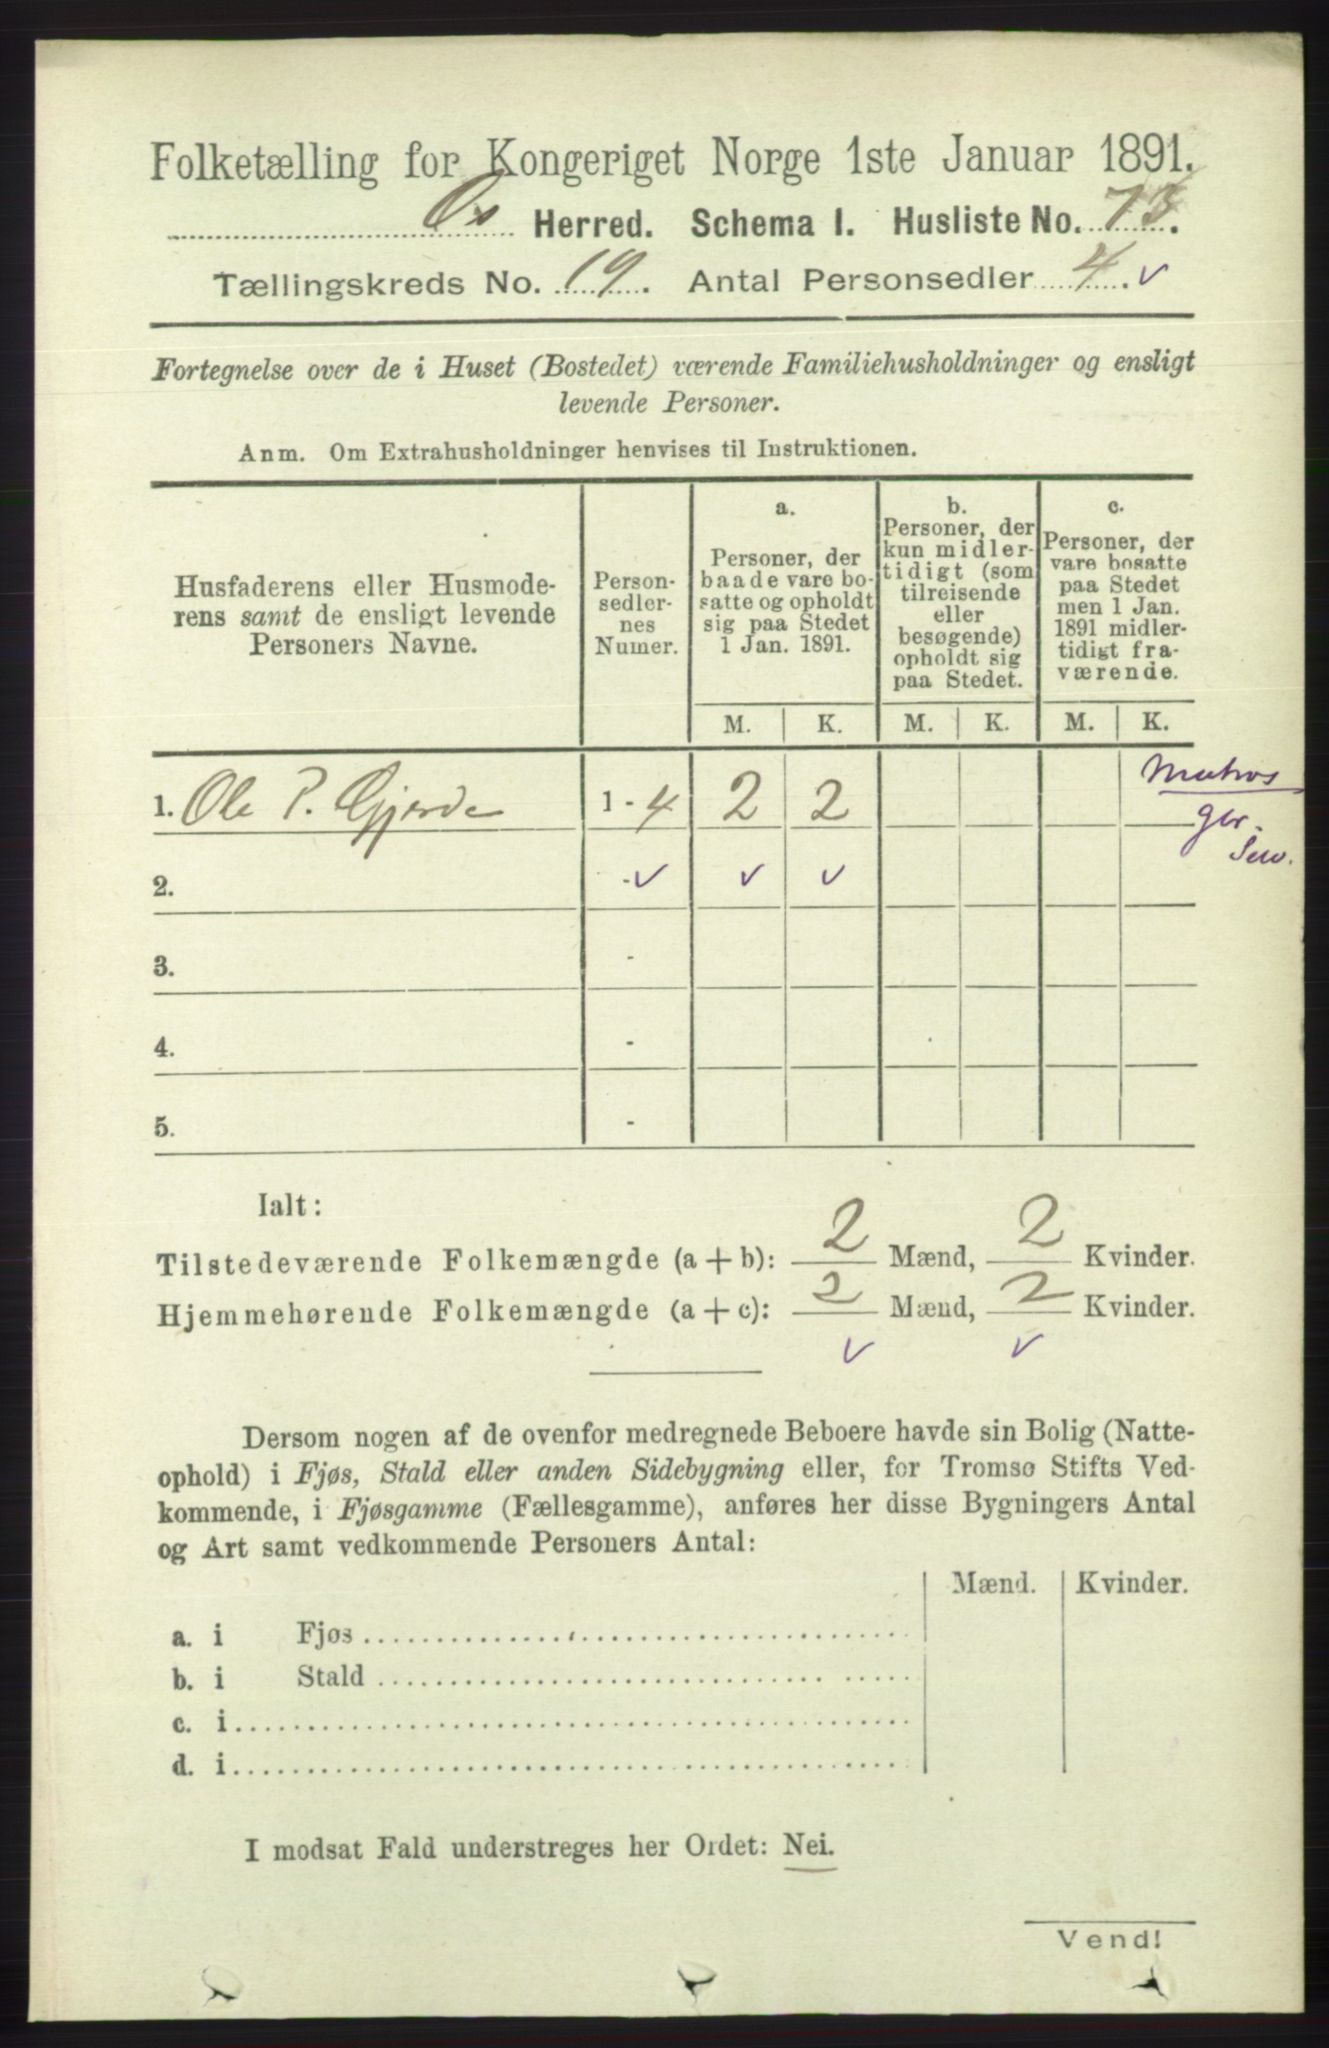 Folketælling for Kongeriget Norge 1ste Januar 1891.
Os Herred. Schema I. Husliste No. 73.
Tællingskreds No. 19. Antal Personsedler 4. v
Fortegnelse over de i Huset (Bostedet) værende Familiehusholdninger og ensligt
levende Personer.
Anm. Om Extrahusholdninger henvises til Instruktionen.
Husfaderens eller Husmode-
rens samt de ensligt levende
Personers Navne.
Person-
sedler-
nes
Numer.
a.
Personer, der
baade vare bo-
satte og opholdt
sig paa Stedet
1 Jan. 1891.
b.
Personer, der
kun midler-
tidigt (som
tilreisende
eller
besøgende)
opholdt sig
paa Stedet.
c.
Personer, der
vare bosatte
paa Stedet
men 1 Jan.
1891 midler-
tidigt fra-
værende.
M. K. M. K. M. K.
1. Ole P. Gjerde 1 - 4 2 2
Matros
gbr.
Selv.
2. - v v v
3. -
4. -
5. -
Ialt:
Tilstedeværende Folkemængde (a + b): 2 Mænd, 2 Kvinder.
Hjemmehørende Folkemængde (a + c): 2 Mænd, 2 Kvinder.
v v
Dersom nogen af de ovenfor medregnede Beboere havde sin Bolig (Natte-
ophold) i Fjøs, Stald eller anden Sidebygning eller, for Tromsø Stifts Ved-
kommende, i Fjøsgamme (Fællesgamme), anføres her disse Bygningers Antal
og Art samt vedkommende Personers Antal:
Mænd. Kvinder.
a. i Fjøs
b. i Stald
c. i
d. i
I modsat Fald understreges her Ordet: Nei.
Vend!